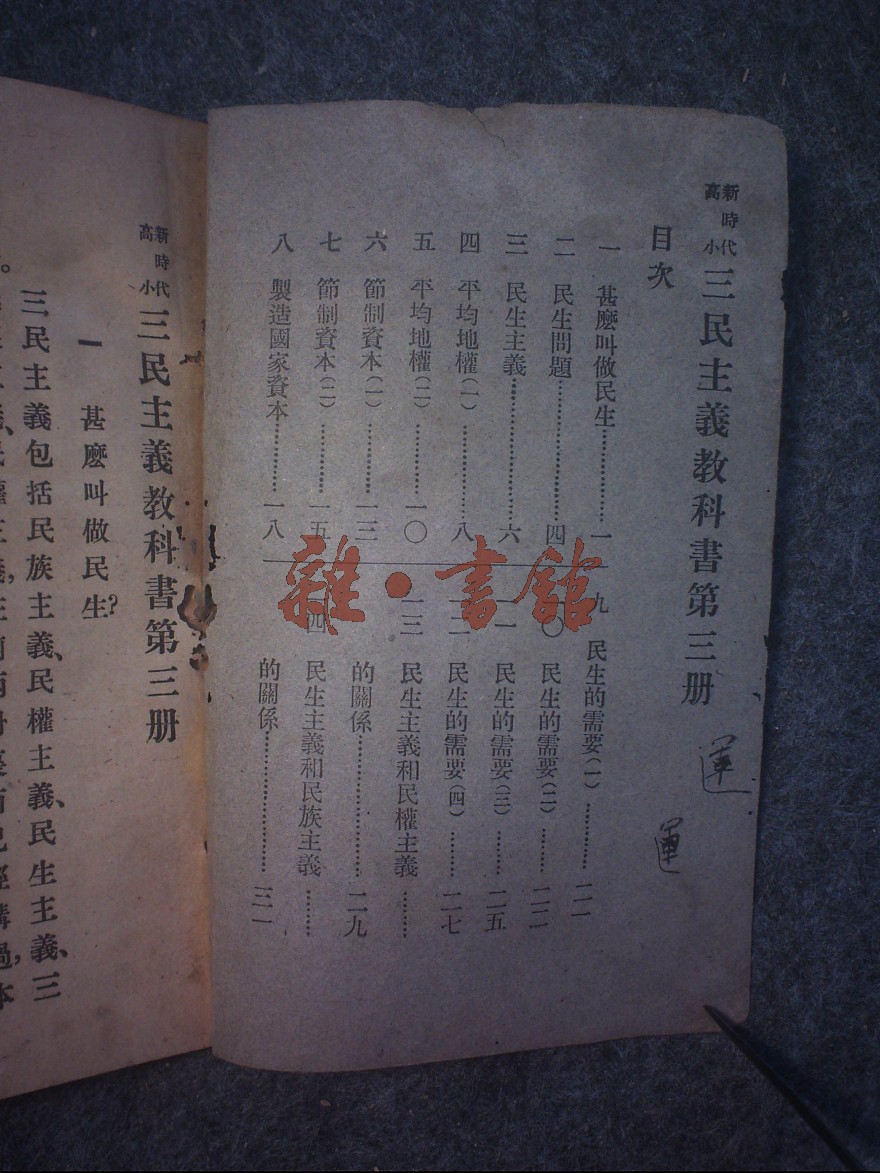 新時代高小 三民主義教科書第三册
目次
一 甚麼叫做民生…………一
二 民生問題…………四
三 民生主義…………六
四 平均地權(一)…………八
五 平均地權(二)…………一〇
六 節制資本(一)…………一三
七 節制資本(二)…………一五
八 製造國家資本…………一八
九 民生的需要(一)…………二一
一〇 民生的需要(二)…………二二
一一 民生的需要(三)…………二五
一二 民生的需要(四)…………二七
一三 民生主義和民權主義…………
的關係…………二九
一四 民生主義和民族主義…………
的關係…………三一
運
運
雜·書館
新時代高小 三民主義教科書第三册
一 甚麼叫做民生?
三民主義包括民族主義、民權主義、民生主義、三